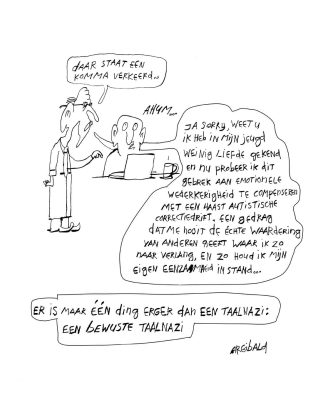 DAAR STAAT EEN
KOMMA VERKEERD..
AHUM...
JA SORRY, WEET U
IK HEB IN MIJN JEUGD
WEINIG LIEFDE GEKEND
EN NU PROBEER IK DIT
GEBREK AAN EMOTIONELE
WEDERKERIGHEID TE COMPENSEREN
MET EEN HAAST AUTISTISCHE
CORRECTIEDRIFT. EEN GEDRAG
DAT ME NOOIT DE ÉCHTE WAARDERING
VAN ANDEREN GEEFT WAAR IK ZO
NAAR VERLANG, EN ZO HOUD IK MIJN
EIGEN EENZAAMHEID IN STAND...
ER IS MAAR ÉÉN DING ERGER DAN EEN TAALNAZI:
EEN BEWUSTE TAALNAZI
AREIBALD